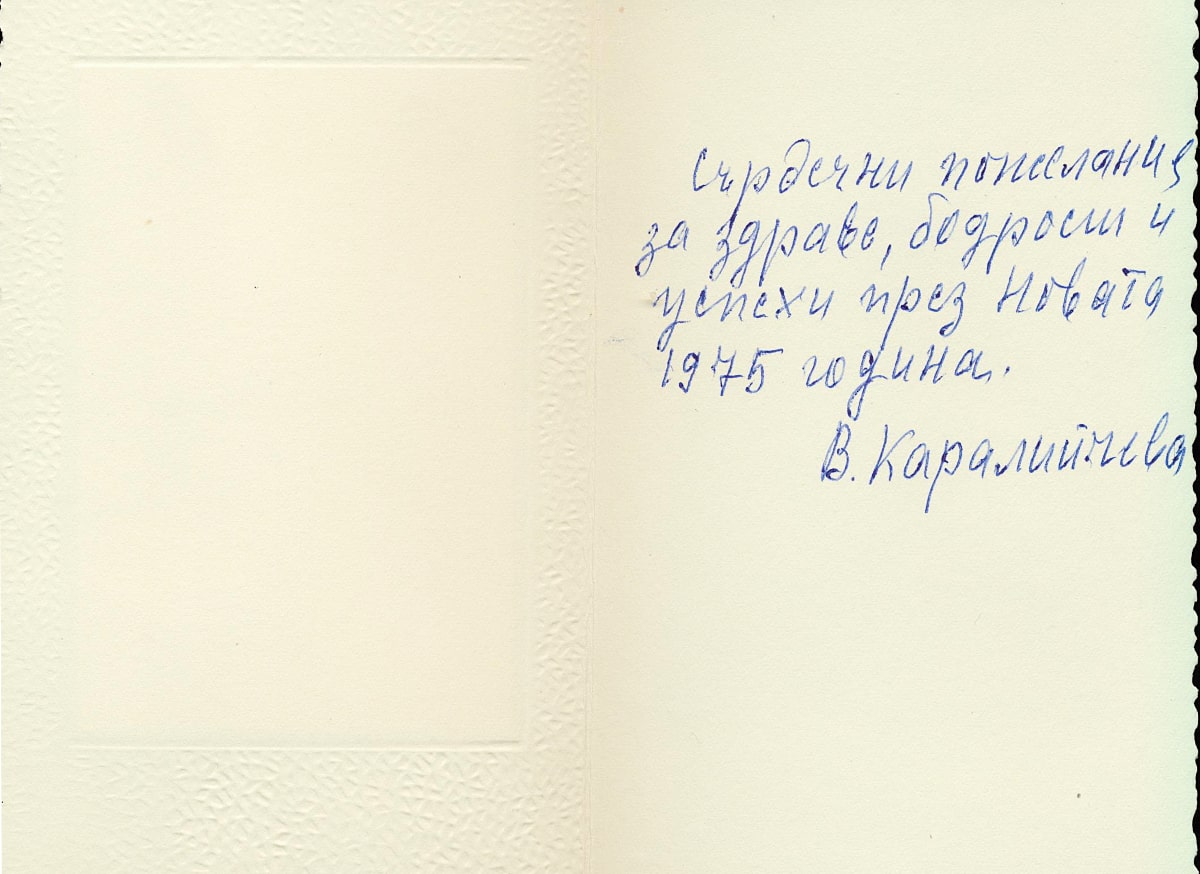 Сърдечни пожелания
за здраве, бодрост и
успехи през Новата
1975 година.
В. Каралийчева